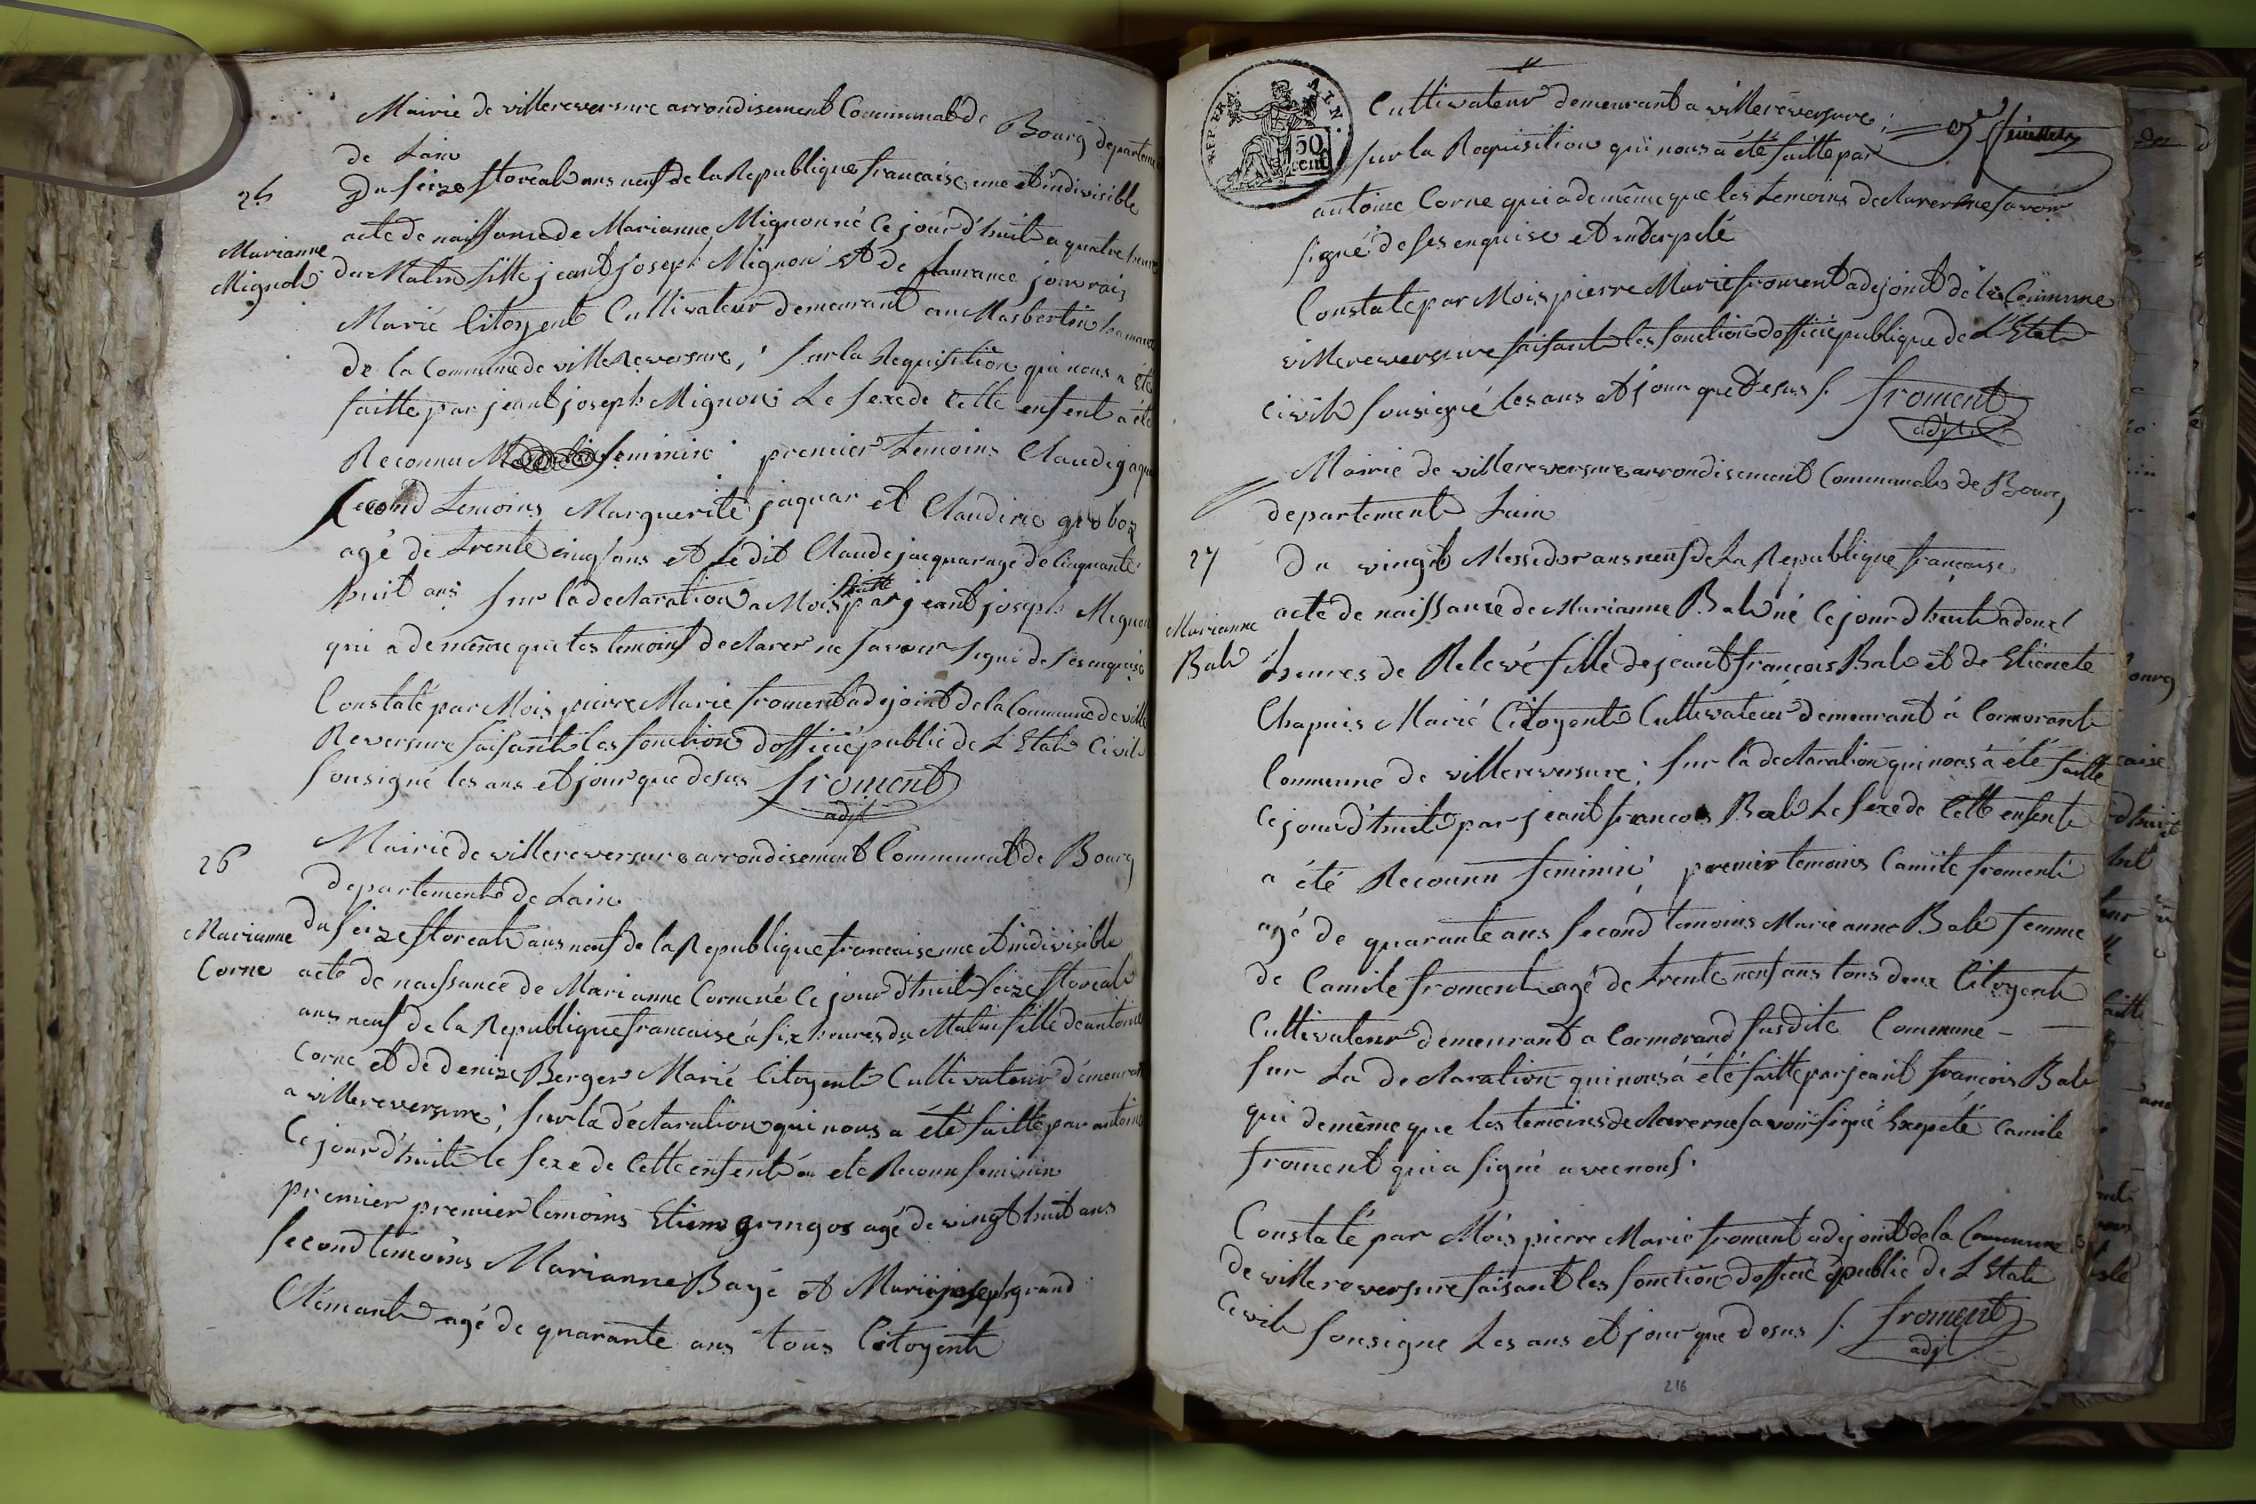 Mairie de villereversure arrondisement Communal de Bourg departeme
de Lain
25
Du seize floreal ans neuf de la Republique francaise une et indivisible
acte de naissance de Marianne Mignon né Ce jour d'huit a quatre heure
Marianne
Mignol
du Matin fille jeant joseph Mignon et de flaurance jouvrais
Marié Citoyent Cultivateur demeurant au Masbertin hamau
de la Commune de villereversure, sur la Requisition qui nous a été
faitte par jeant joseph Mignon Le sexe de Cette enfent a été
Reconnu feminin premier temoins Claude jaquar
second temoins Marguerite jaquar et Claudine groboz
agé de trente cinq ans et Le dit Claude jacquar age de Cinquante
huit ans sur la declaration a Mois faitte par jeant joseph Mignon
qui a de même que les temoins declarer ne savoir signé de ses enquise
Constaté par Mois pierre Marie froment adejoint de la Commune de ville
Reversure faisant les fonctions d'officié public de L'Etat Civil
sousigné les ans et jour que desus froment
adjt
26
Mairie de villereversure arrondisement Communal de Bourg
departement de Lain
Marianne
Corne
du seize floreal ans neuf de la Republique francaise une et indivisible
acte de naissance de Marianne Corne né Ce jour d'huit seize floreal
ans neuf de la Republique francaise à six heures du Matin fille de antoine
Corne et de denize Berger Marié Citoyent Cultivateur demeurant
a villereversure; sur la déclaration qui nous a été faitte par antoine
Ce jour d'huit le sexe de Cette enfent a eté Reconu feminin
premier premier temoins Etiene gringoz agé de vingt huit ans
second temoins Marianne Bayé et Marie joseph grand
Clémant agé de quarante ans tous Citoyent
REP. FRA. AIN.
50
cent
Cultivateur demeurant a villereversure;
sur la Requisition qui nous a été faitte par
antoine Corne qui a de même que les temoins declarer ne savoir
signé de ses enquise et interpelé
Constate par Mois pierre Marie froment adejoint de la Commune
villereversure faisant les fonction d'officié publique de L'Etat
Civil sousigné les ans et jour que desus /. froment
adjt
Mairie de villereversure arrondisement Communal de Bourg
departement Lain
27
Du vingt Messidor ans neuf de La Republique française
Marianne
Bal
acte de naissance de Marianne Bal né Ce jour d huit a deux
heures de Relevé fille de jeant françois Bal et de Etienete
Chapuis Marié Citoyent Cultivateur demeurant à Cormorant
Commune de villereversure; sur la declaration qui nous à été faitte
Ce jour d'huit par jeant francois Bal Le sexe de Cette enfent
a été Reconnu feminin; premier temoins Camile froment
agé de quarante ans second temoins Marie anne Bal femme
de Camile froment agé de trente neuf ans tous deux Citoyent
Cultivateur demeurant a Cormorand susdite Commune
sur La declaration qui nous à été faitte par jeant françois Bal
qui de même que les temoins declarer ne savoir signé Exepté Camile
froment qui a signé avec nous.
Constaté par Mois pierre Marie froment adejoint de la Commune
de villereversure faisant les fonction d'officié public de L'Etat
Civil sousigne Les ans et jour que desus /. froment
adjt
216